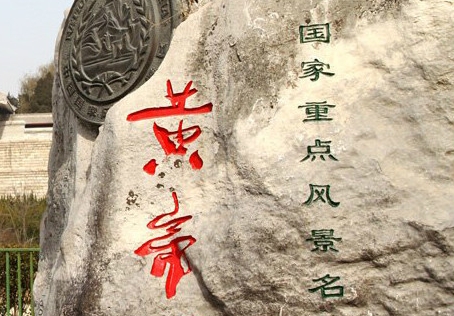 国家重点风景名
黄帝